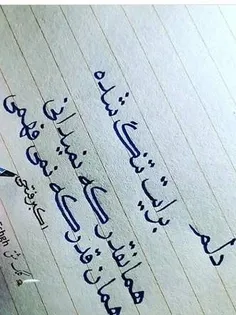 دلم
برایت تنگ شده
همانقدر که نمیدانی
همان قدر که نمی فهمی
اکبر فتحی